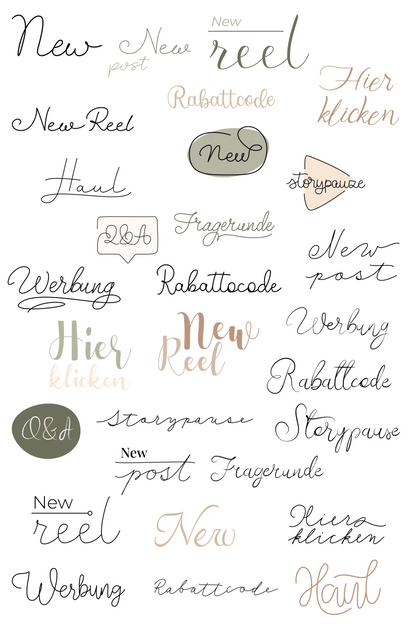 New
New
post
New
reel
Hier
klicken
Rabattcode
New Reel
New
Haul
storypause
Q&A
Fragerunde
New
post
Werbung
Rabattocode
Hier
klicken
New
Reel
Werbung
Rabattcode
Q&A
Storypause
Storypause
New
post
Fragerunde
New
reel
New
Hier
klicken
Werbung
Rabattcode
Haul